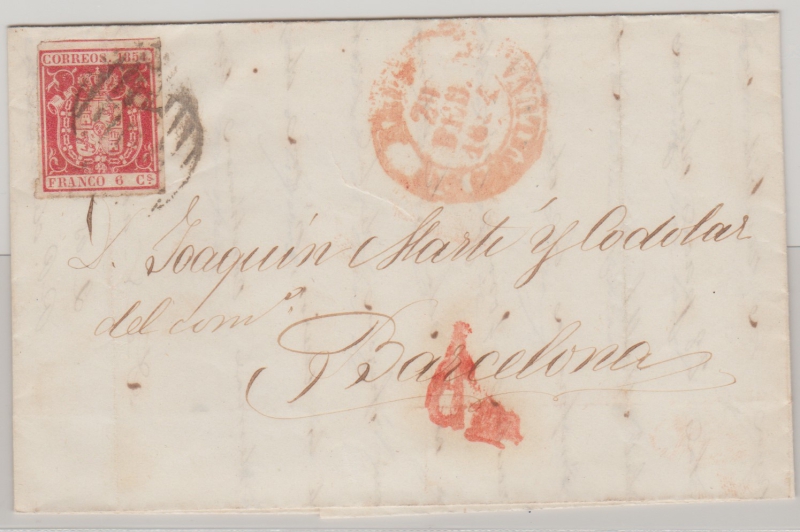 CORREOS. 1854
FRANCO 6 Cs
D. Joaquín Martí y Codolar
del como
Barcelona